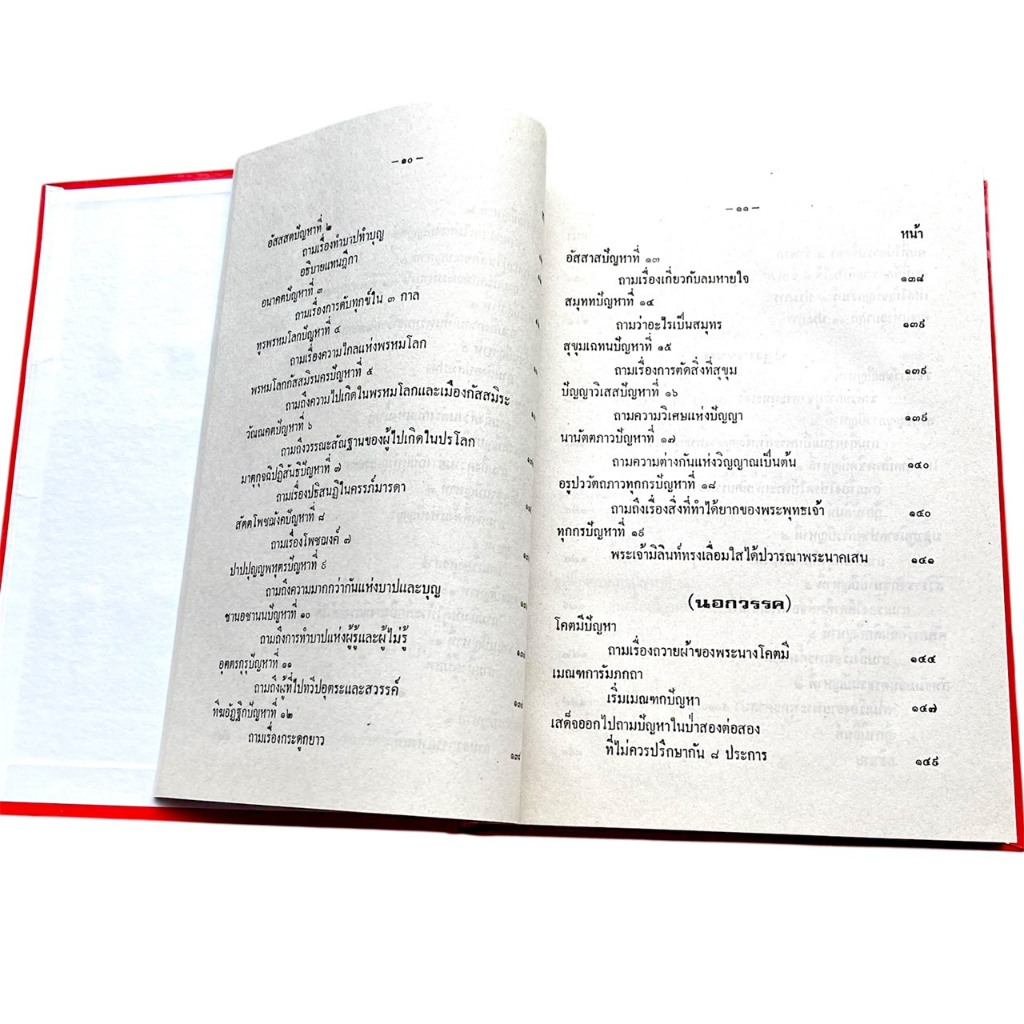 – ๑๐ –
อัสสสตปัญหาที่ ๒
ถามเรื่องทำบาปทำบุญ
อธิบายแทนฎีกา
อนาคตปัญหาที่ ๓
ถามเรื่องการดับทุกข์ใน ๓ กาล
ทูรพรหมโลกปัญหาที่ ๔
ถามเรื่องความไกลแห่งพรหมโลก
พรหมโลกกัสสมิรนครปัญหาที่ ๕
ถามถึงความไปเกิดในพรหมโลกและเมืองกัสสมิระ
วัณณคตปัญหาที่ ๖
ถามถึงวรรณะสัณฐานของผู้ไปเกิดในปรโลก
มาตุกุจฉิปฏิสันธิปัญหาที่ ๗
ถามเรื่องปธิสนฏิในครรภ์มารดา
สัตตโพชฌังคปัญหาที่ ๘
ถามเรื่องโพชฌงค์ ๗
ปาปปุญญพหุตรปัญหาที่ ๙
ถามถึงความมากกว่ากันแห่งบาปและบุญ
ชานอชานนปัญหาที่ ๑๐
ถามถึงการทำบาปแห่งผู้รู้และผู้ไม่รู้
อุตตรกุรุปัญหาที่ ๑๑
ถามถึงผู้ที่ไปทวีปอุตระและสวรรค์
ทีฆอัฏฐิกปัญหาที่ ๑๒
ถามเรื่องกระดูกยาว
– ๑๑ –
หน้า
อัสสาสปัญหาที่ ๑๓
ถามเรื่องเกี่ยวกับลมหายใจ ๑๓๘
สมุททปัญหาที่ ๑๔
ถามว่าอะไรเป็นสมุทร ๑๓๙
สุขุมเฉทนปัญหาที่ ๑๕
ถามเรื่องการตัดสิ่งที่สุขุม ๑๓๙
ปัญญาวิเสสปัญหาที่ ๑๖
ถามความวิเศษแห่งปัญญา ๑๓๙
นานัตตภาวปัญหาที่ ๑๗
ถามความต่างกันแห่งวิญญาณเป็นต้น ๑๔๐
อรูปววัตถภาวทุกกรปัญหาที่ ๑๘
ถามถึงเรื่องสิ่งที่ทำได้ยากของพระพุทธเจ้า ๑๔๐
ทุกกรปัญหาที่ ๑๙
พระเจ้ามิลินท์ทรงเลื่อมใสได้ปวารณาพระนาคเสน ๑๔๑
(นอกวรรค)
โคตมีปัญหา
ถามเรื่องถวายผ้าของพระนางโคตมี ๑๔๔
เมณฑการัมภกถา
เริ่มเมณฑกปัญหา ๑๔๗
เสด็จออกไปถามปัญหาในป่าสองต่อสอง
ที่ไม่ควรปรึกษากัน ๘ ประการ ๑๔๙